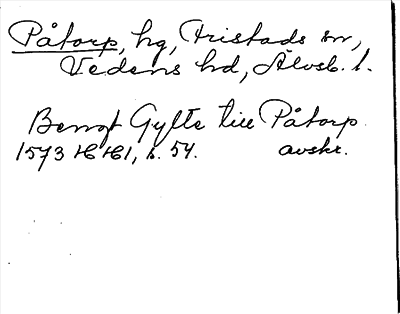 Påtorp, hg, Fristads sn,
Vedens hd, Älvsb. l.
Bengt Gylte till Påtorp.
1573 HH1, s. 54. avskr.